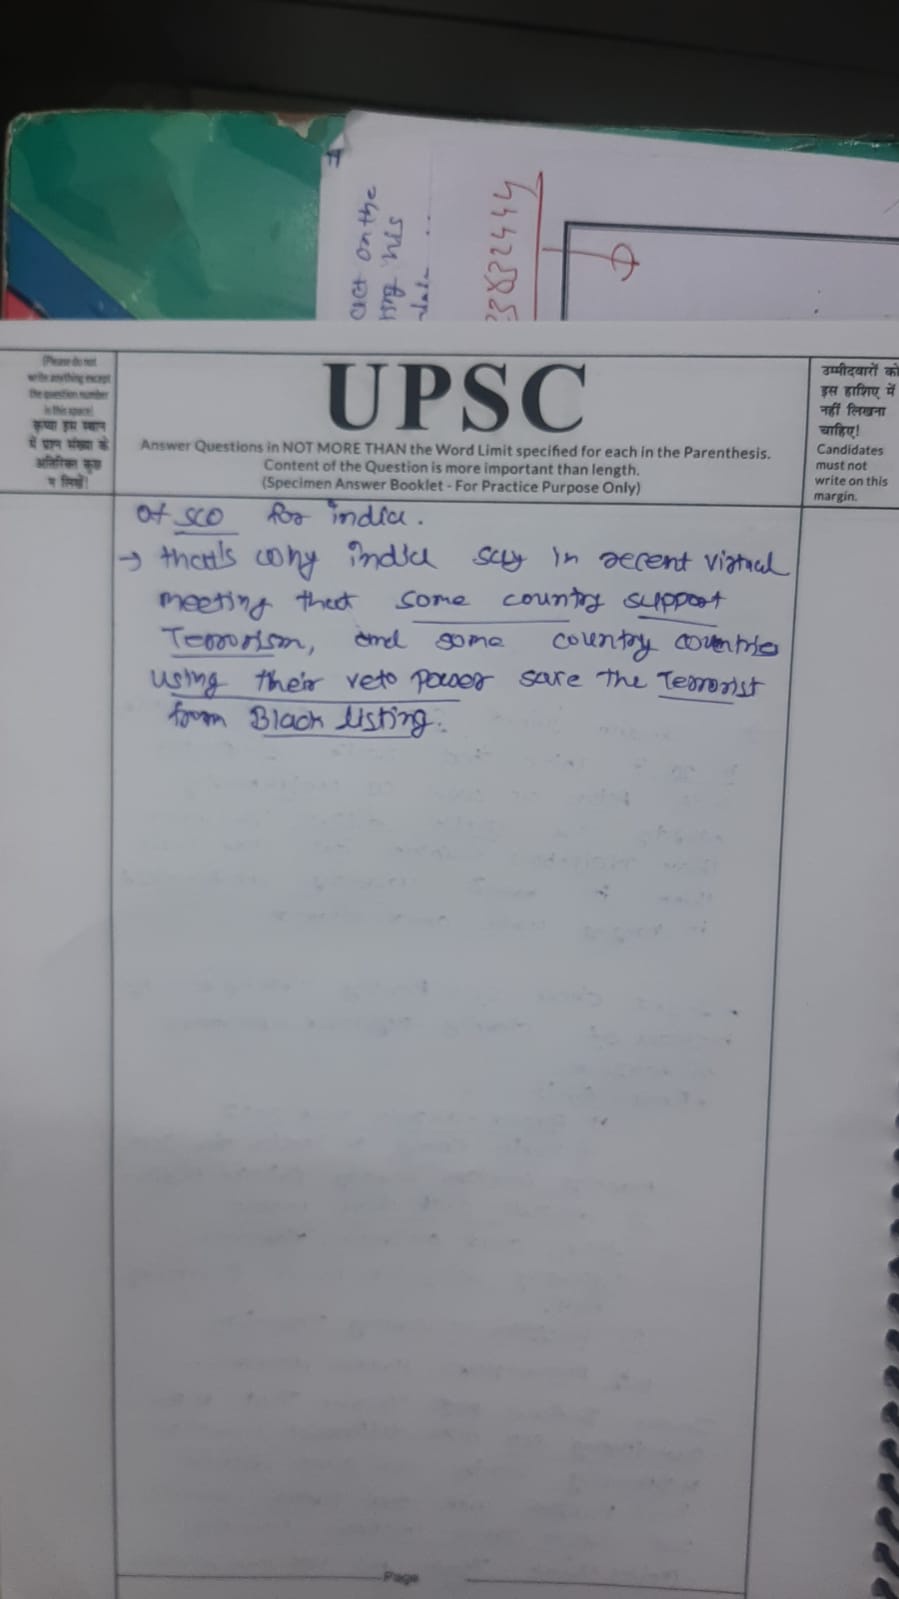 #
act on the
ing his
3832444
(Please do not
write anything except
the question number
in this space)
कृपया इस स्थान
में प्रश्न संख्या के
अतिरिक्त कुछ
न लिखें!
UPSC
Answer Questions in NOT MORE THAN the Word Limit specified for each in the Parenthesis.
Content of the Question is more important than length.
(Specimen Answer Booklet - For Practice Purpose Only)
उम्मीदवारों को
इस हाशिए में
नहीं लिखना
चाहिए!
Candidates
must not
write on this
margin.
of SCO for india.
→ that's why india say in recent virtual
meeting that some country support
Terrorism, and some country countries
using their veto power save the Terrorist
from Black listing.
Page